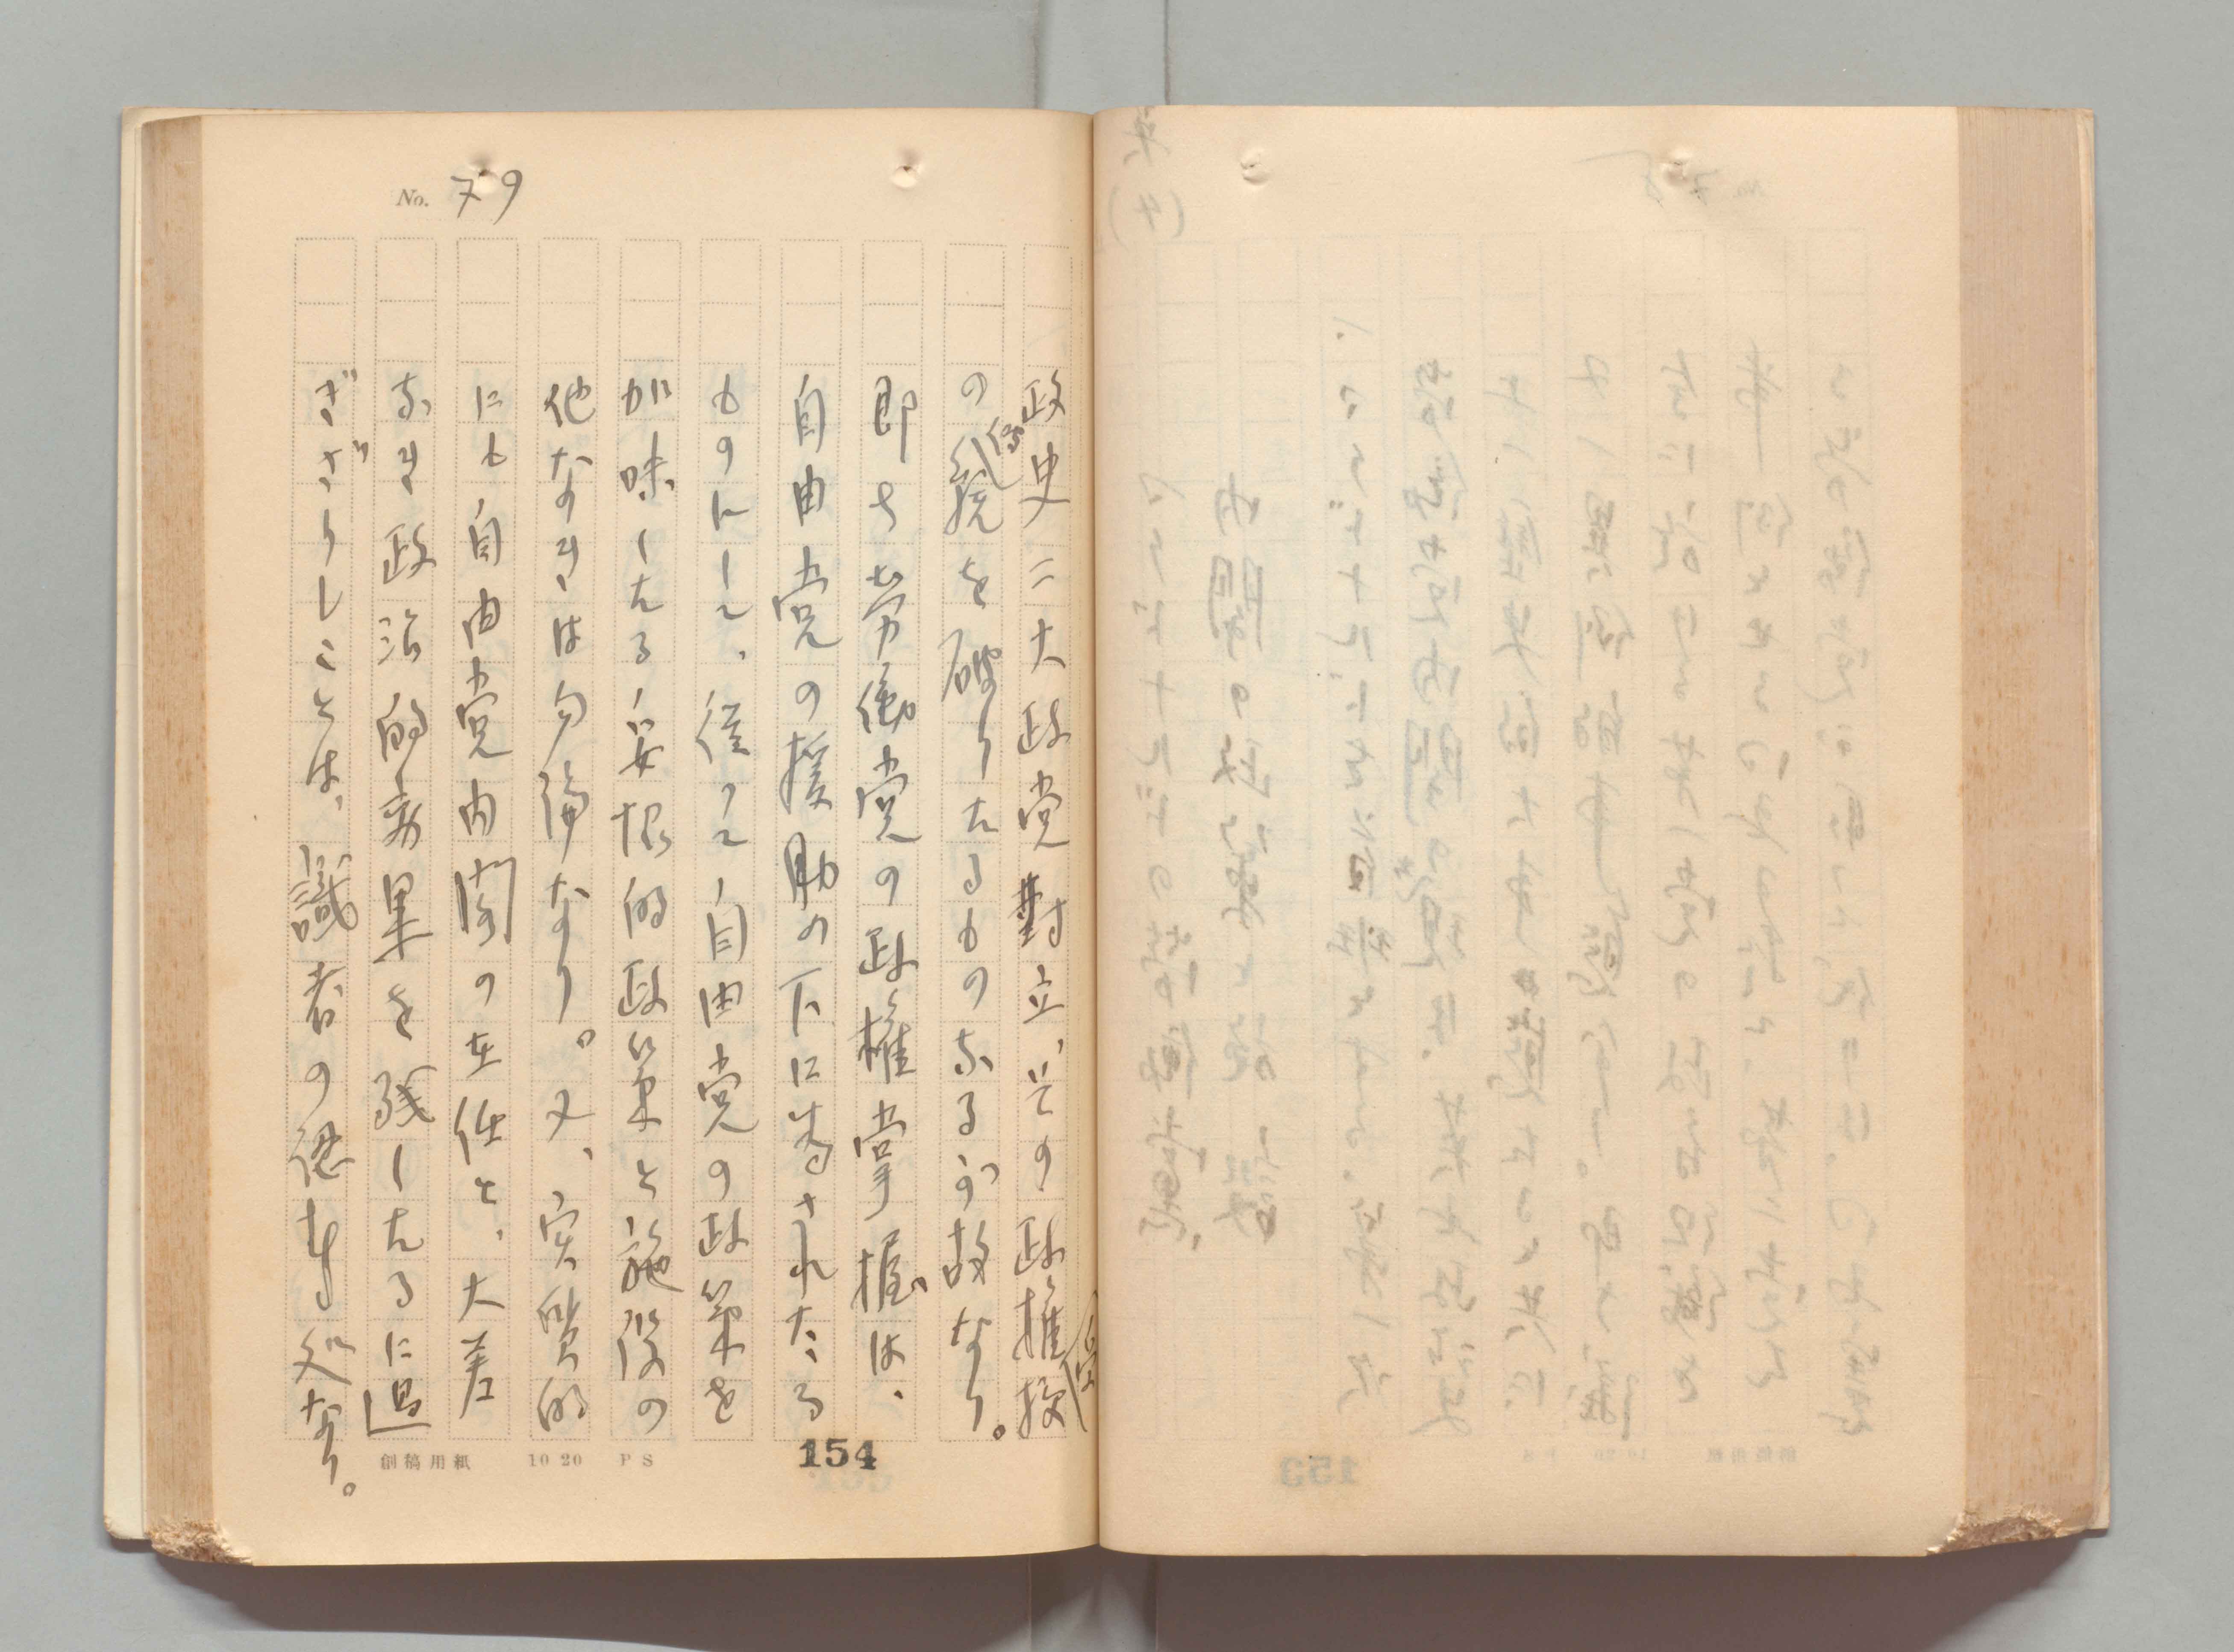 No. 79
政史二大政党對立、その政權授受
の伝統を破りたるものなるが故なり。
即ち労働党の政權掌握は、
自由党の援助の下に為されたる
ものにして、従って自由党の政策を
加味したる妥協的政策と施政の
他なきは勿論なり。又、実質的
にも自由党内閣の在任と、大差
なき政治的効果を残したるに過
ぎざりしことは、識者の認むる処なり。
創稿用紙 10 20 PS
154